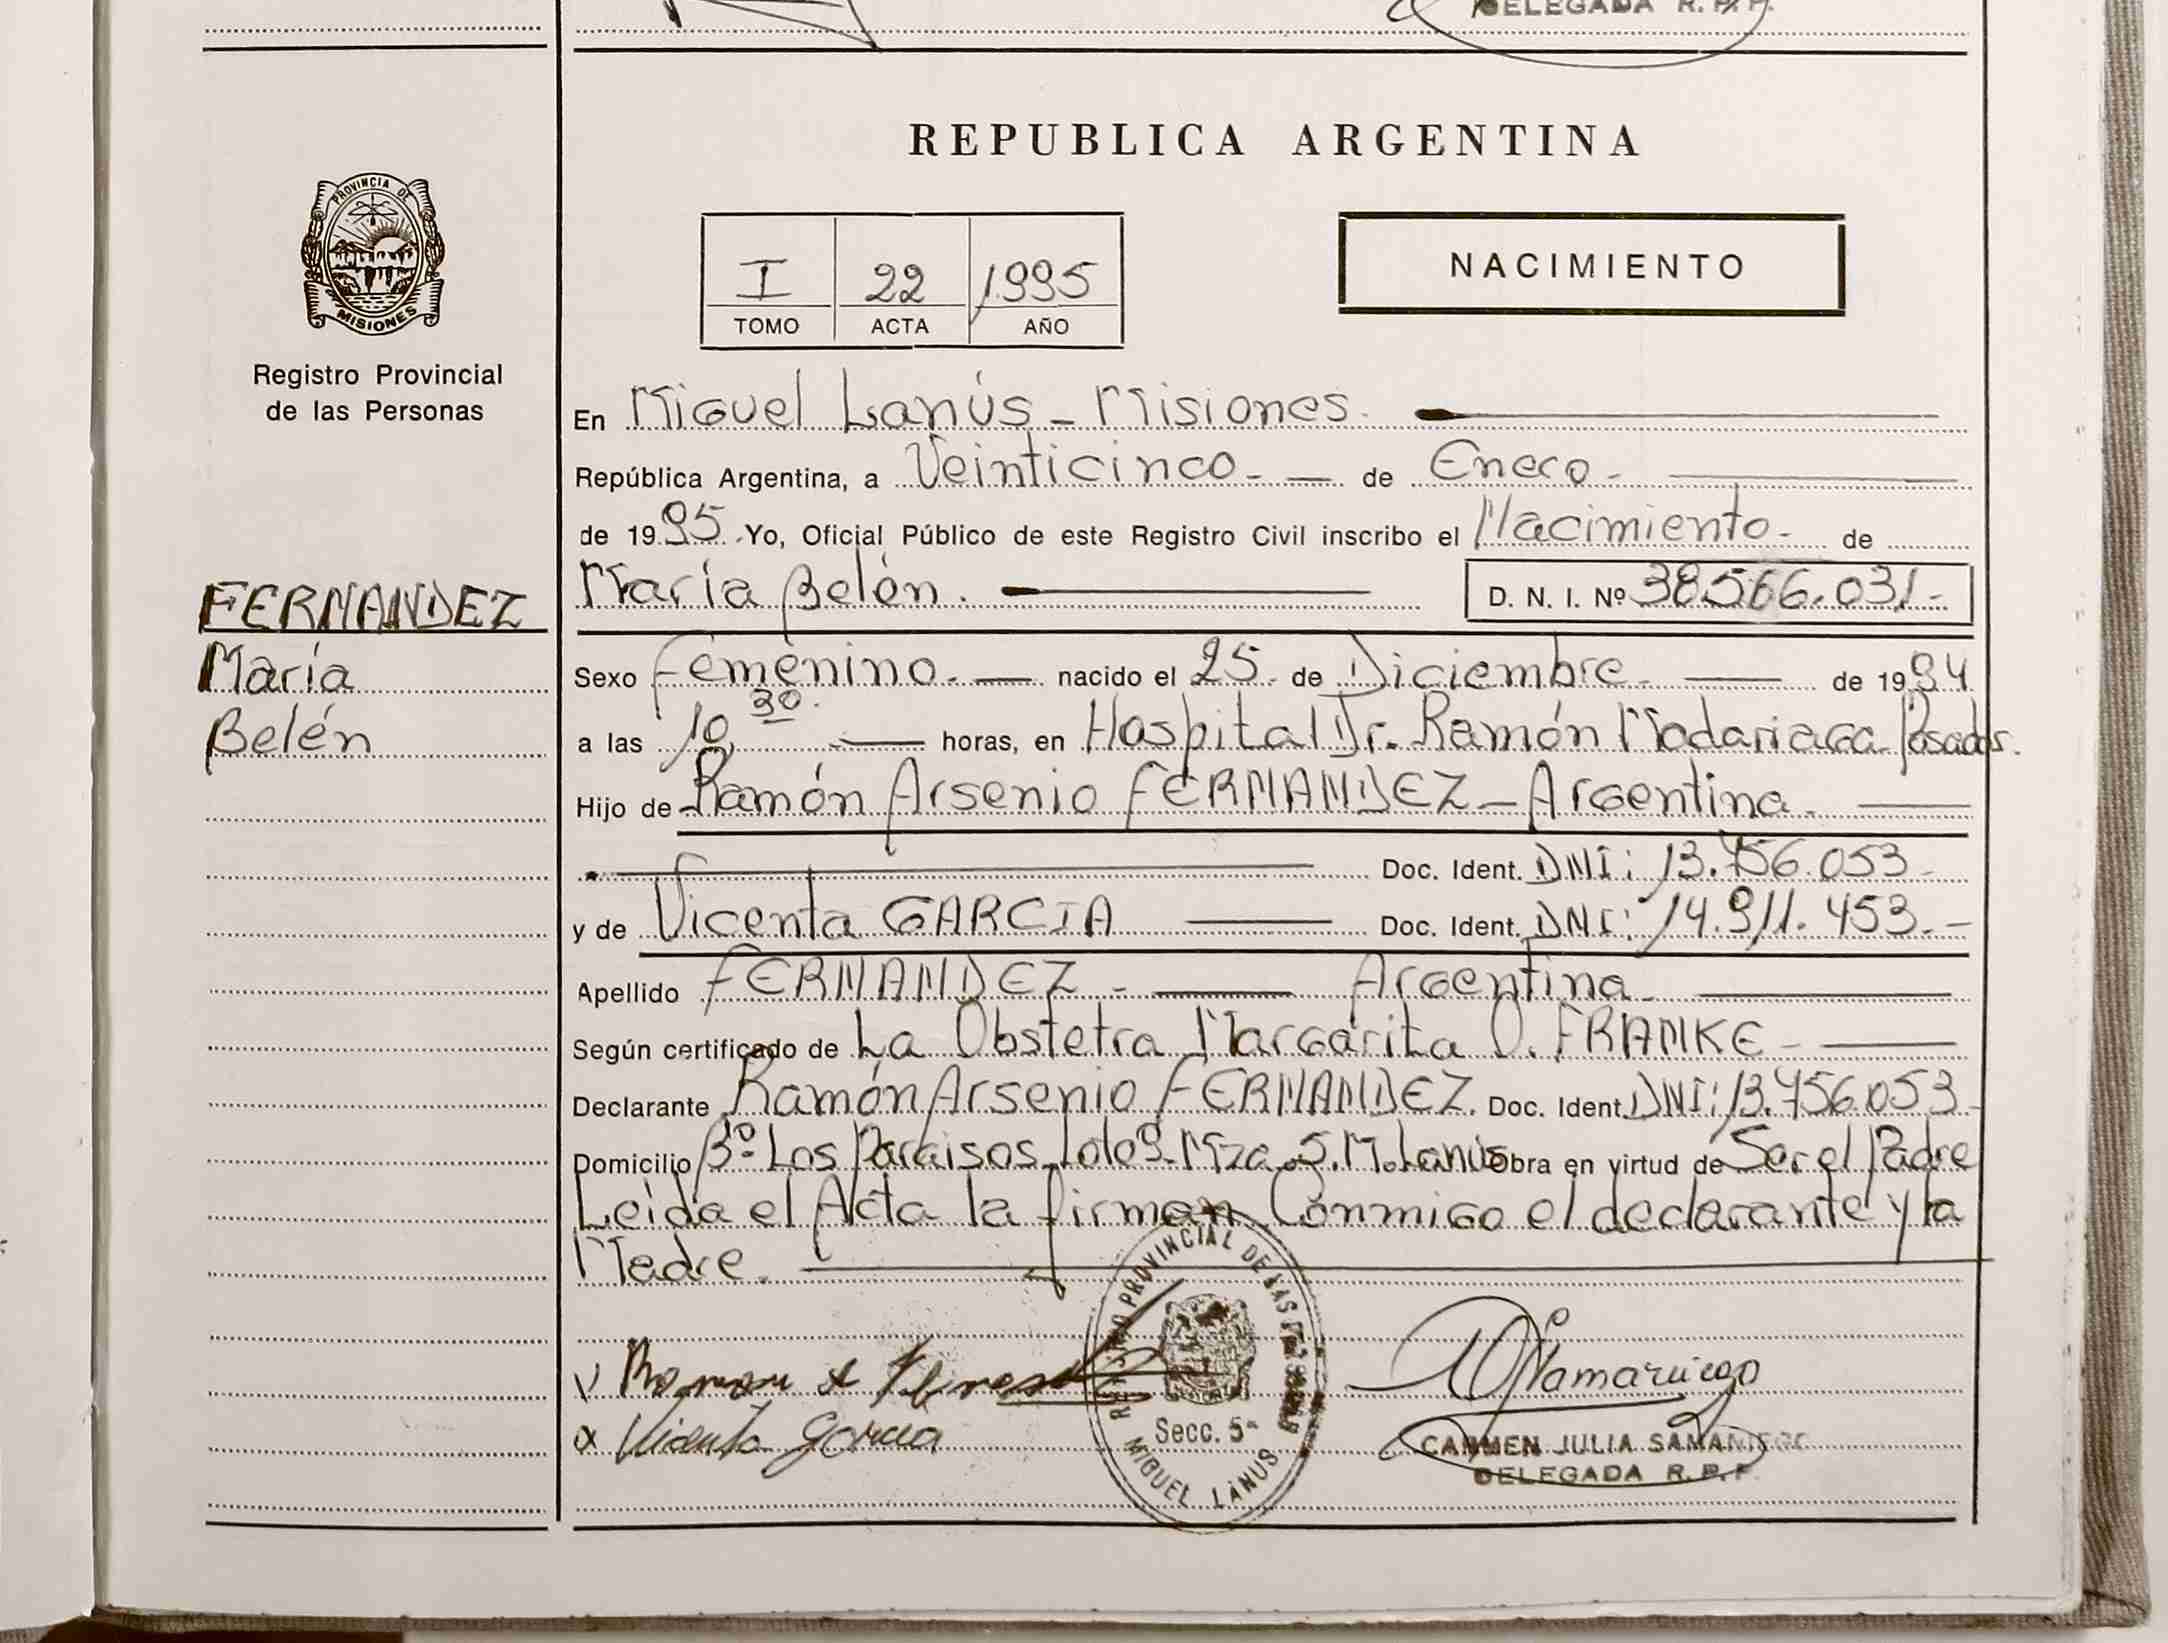 DELEGADA R. P. P.
REPUBLICA ARGENTINA
PROVINCIA DE
MISIONES
Registro Provincial
de las Personas
I 22 1995
TOMO ACTA AÑO
NACIMIENTO
En Miguel Lanús - Misiones.
República Argentina, a Veinticinco - de Enero -
de 1995 Yo, Oficial Público de este Registro Civil inscribo el Nacimiento - de
María Belén. D. N. I. Nº 38.566.031.-
FERNANDEZ
María
Belén
Sexo femenino. nacido el 25 de Diciembre - de 1994
a las 10 30 horas, en Hospital Dr. Ramón Madariaga Posadas.
Hijo de Ramón Arsenio FERNANDEZ - Argentina -
Doc. Ident. DNI: 13.756.053 -
y de Vicenta GARCIA Doc. Ident. DNI: 14.911.453.-
Apellido FERNANDEZ - Argentina -
Según certificado de La Obstetra Margarita O. FRANKE -
Declarante Ramón Arsenio FERNANDEZ. Doc. Ident. DNI: 13.756.053 -
Domicilio Bº Los Paraisos Lote 9. Mza. 5. M. Lanús Obra en virtud de Ser el Padre
Leida el Acta la firman Conmigo el declarante y la
Madre.
REGISTRO PROVINCIAL DE LAS PERSONAS
Secc. 5ª
MIGUEL LANUS
Vicenta Garcia
CARMEN JULIA SAMANIEGO
DELEGADA R. P. P.